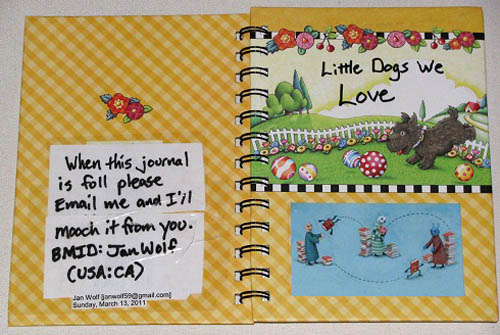 When this journal
is foll please
Email me and I'll
mooch it from you.
BMID: JanWolf
(USA:CA)
Jan Wolf [janwolf59@gmail.com]
Sunday, March 13, 2011
Little Dogs We
Love